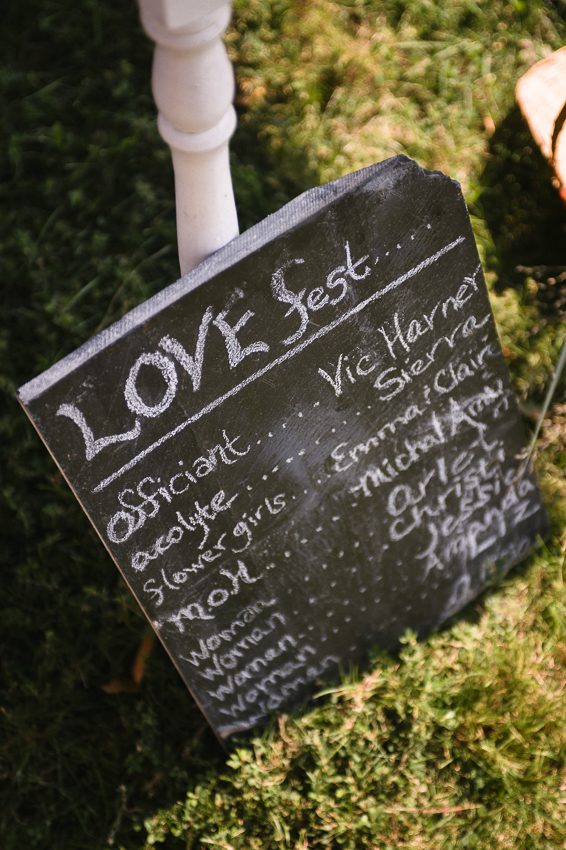 LOVE fest.....
officiant...... Vic Harner
acolyte...... Sierra
flowergirls.... Emma & Clair
MOH....... Michal Ann
Woman....... Arlet
Woman....... Christi
Women....... Jessi
Woman....... Amanda
Women